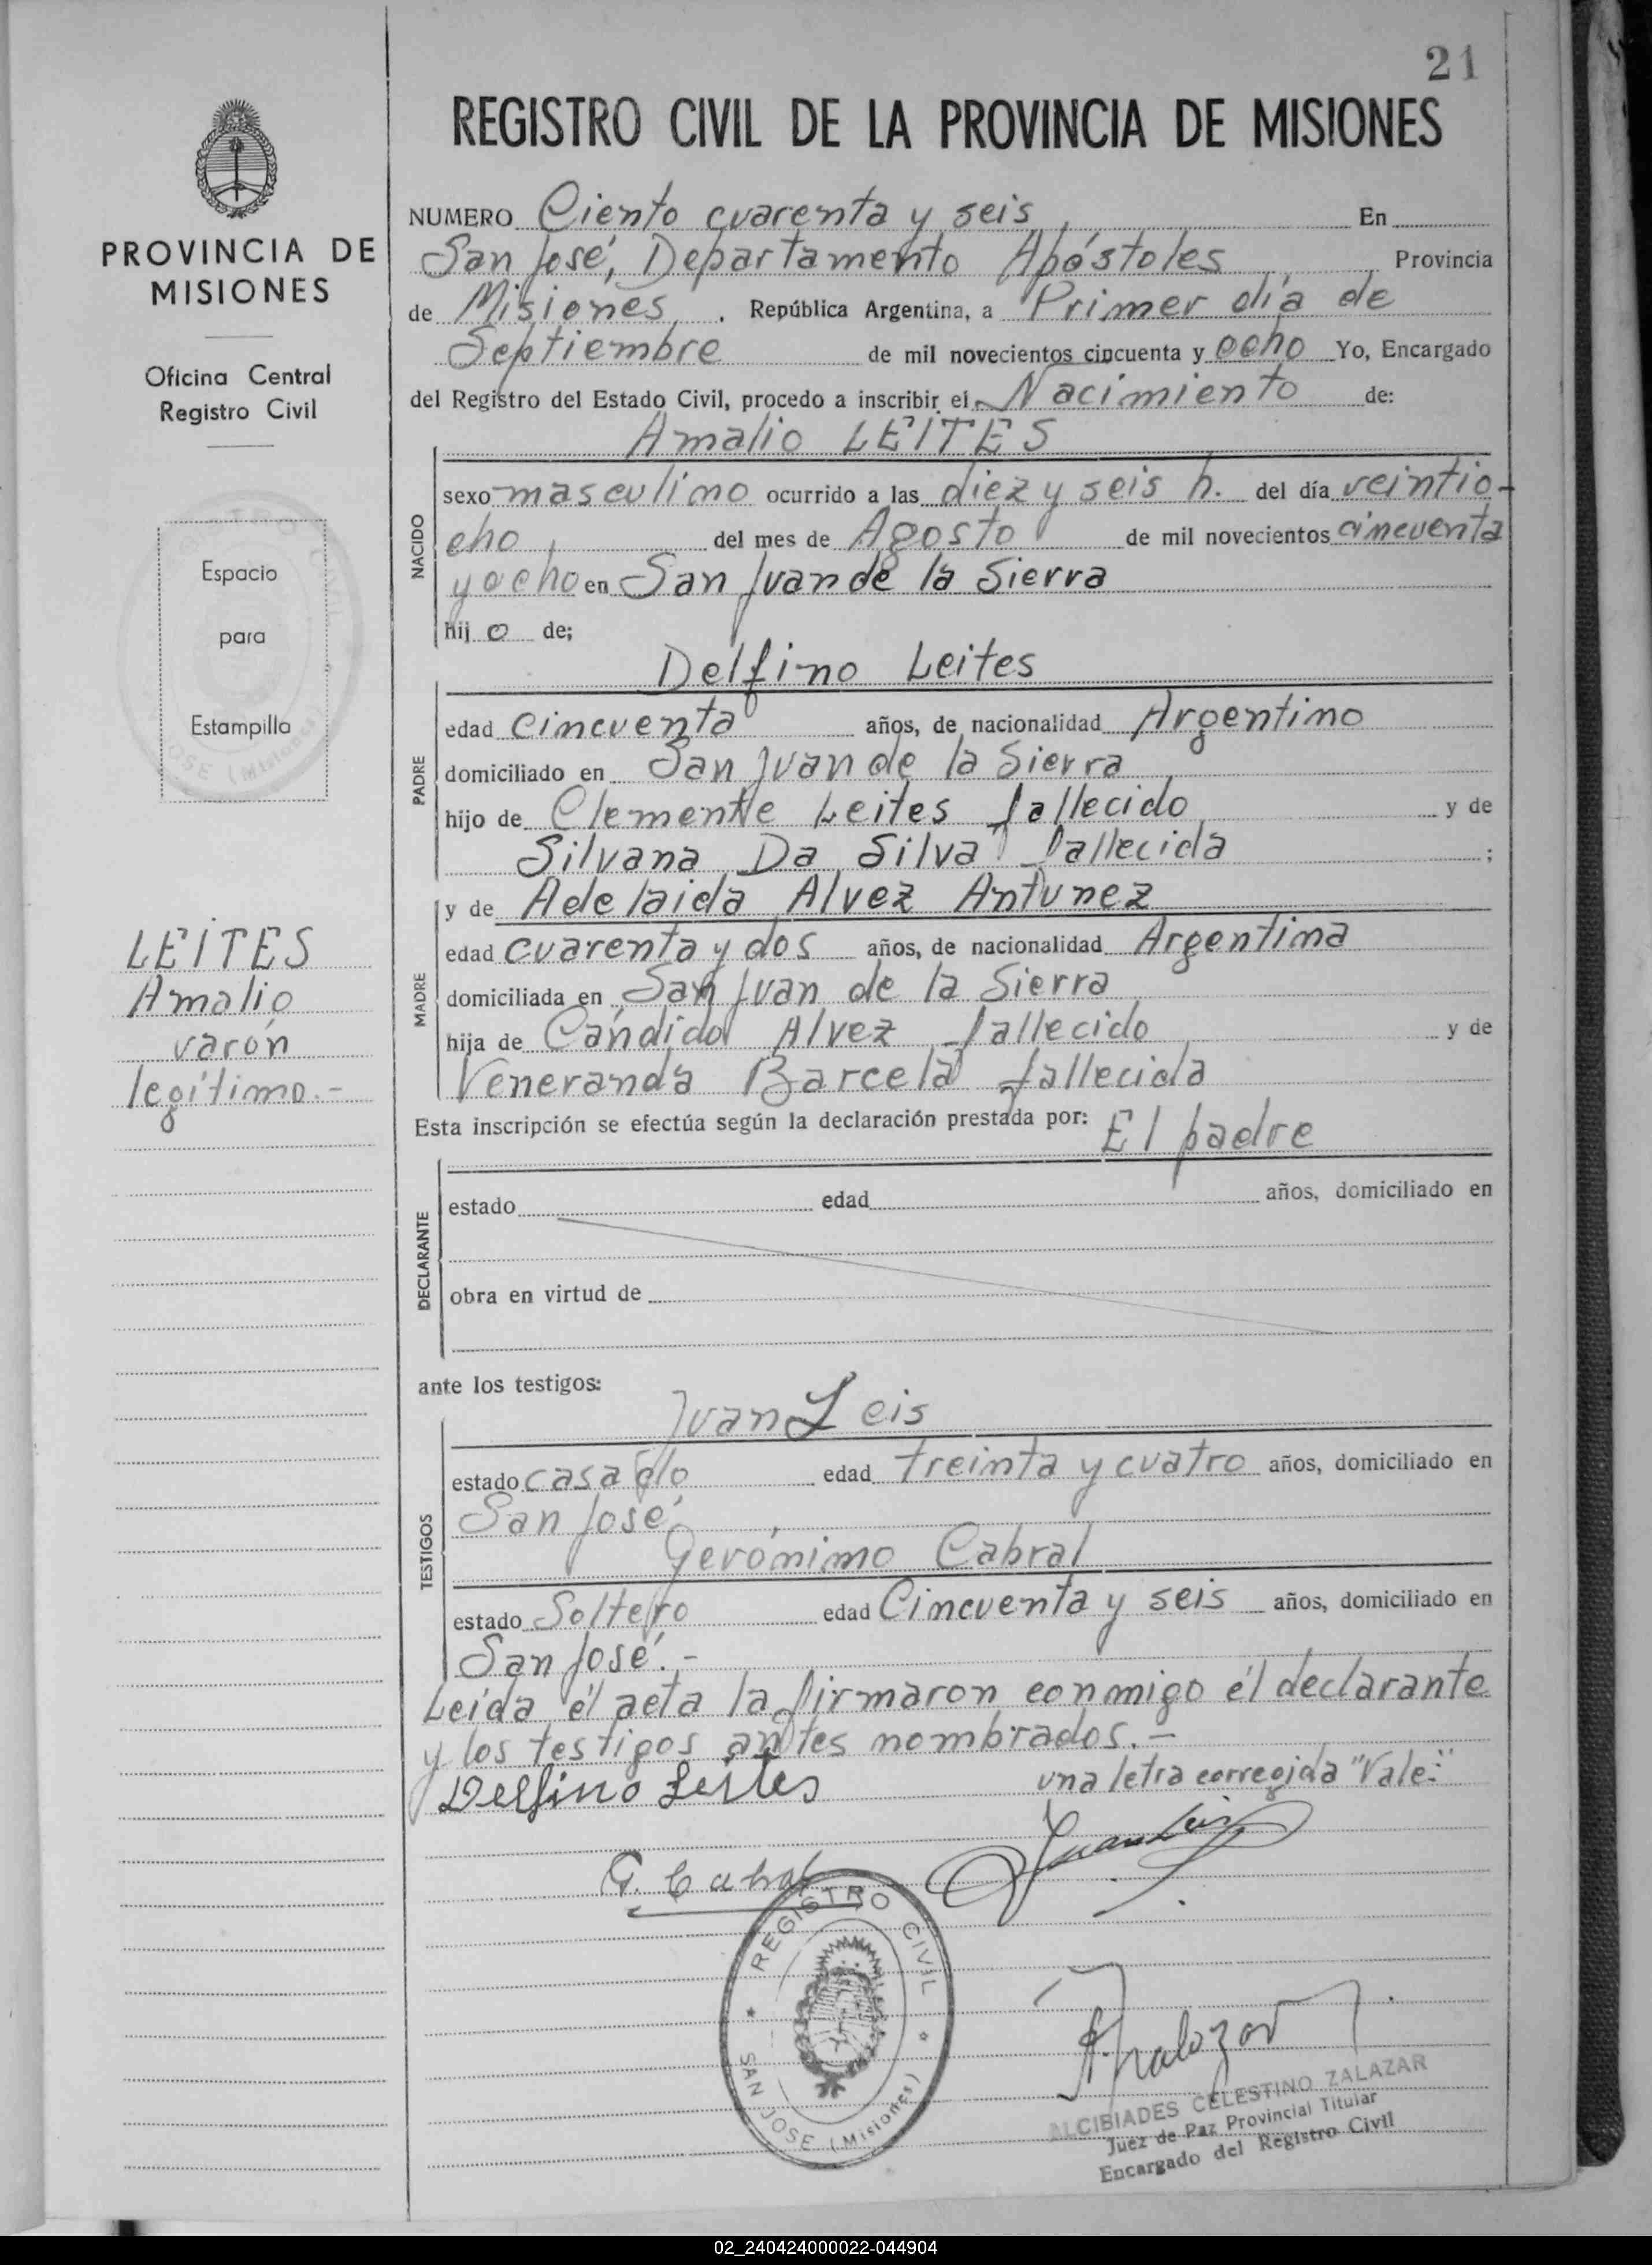 21
REGISTRO CIVIL DE LA PROVINCIA DE MISIONES
PROVINCIA DE
MISIONES
Oficina Central
Registro Civil
Espacio
para
Estampilla
LEITES
Amalio
varón
legítimo.-
NUMERO Ciento cuarenta y seis En
San José, Departamento Apóstoles Provincia
de Misiones, República Argentina, a Primer día de
Septiembre de mil novecientos cincuenta y ocho Yo, Encargado
del Registro del Estado Civil, procedo a inscribir el Nacimiento de:
Amalio LEITES
NACIDO
sexo masculino ocurrido a las diez y seis h. del día veintio-
cho, del mes de Agosto de mil novecientos cincuenta
y ocho en San Juan de la Sierra
hijo de;
Delfino Leites
PADRE
edad cincuenta años, de nacionalidad Argentino
domiciliado en San Juan de la Sierra
hijo de Clemente Leites fallecido y de
Silvana Da Silva fallecida ;
y de Adelaida Alvez Antunez
MADRE
edad cuarenta y dos años, de nacionalidad Argentina
domiciliada en San Juan de la Sierra
hija de Cándido Alvez fallecido y de
Veneranda Barcela fallecida
Esta inscripción se efectúa según la declaración prestada por: El padre
DECLARANTE
estado edad años, domiciliado en
obra en virtud de
ante los testigos:
Juan Leis
TESTIGOS
estado casado edad treinta y cuatro años, domiciliado en
San José,
Gerónimo Cabral
estado Soltero edad Cincuenta y seis años, domiciliado en
San José.-
Leída él acta la firmaron conmigo él declarante
y los testigos antes nombrados.-
una letra corregida "Vale"
Delfino Leites
Juan Leis
G. Cabral
REGISTRO CIVIL
SAN JOSE (Misiones)
ALCIBIADES CELESTINO ZALAZAR
Juez de Paz Provincial Titular
Encargado del Registro Civil
02_240424000022-044904